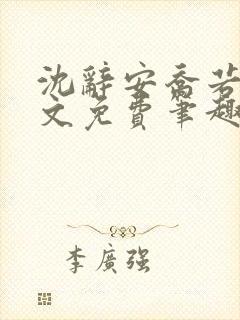 沈辭安喬芸
文免費筆趣
李廣強